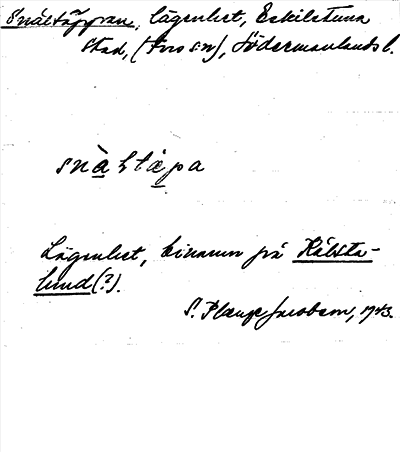 Snåltäppan, lägenhet, Eskilstuna
stad, (Fors sn), Södermanlands l.
Lägenhet, binamn på Kålsta-
lund(?).
S. Plange Jacobson, 1943.